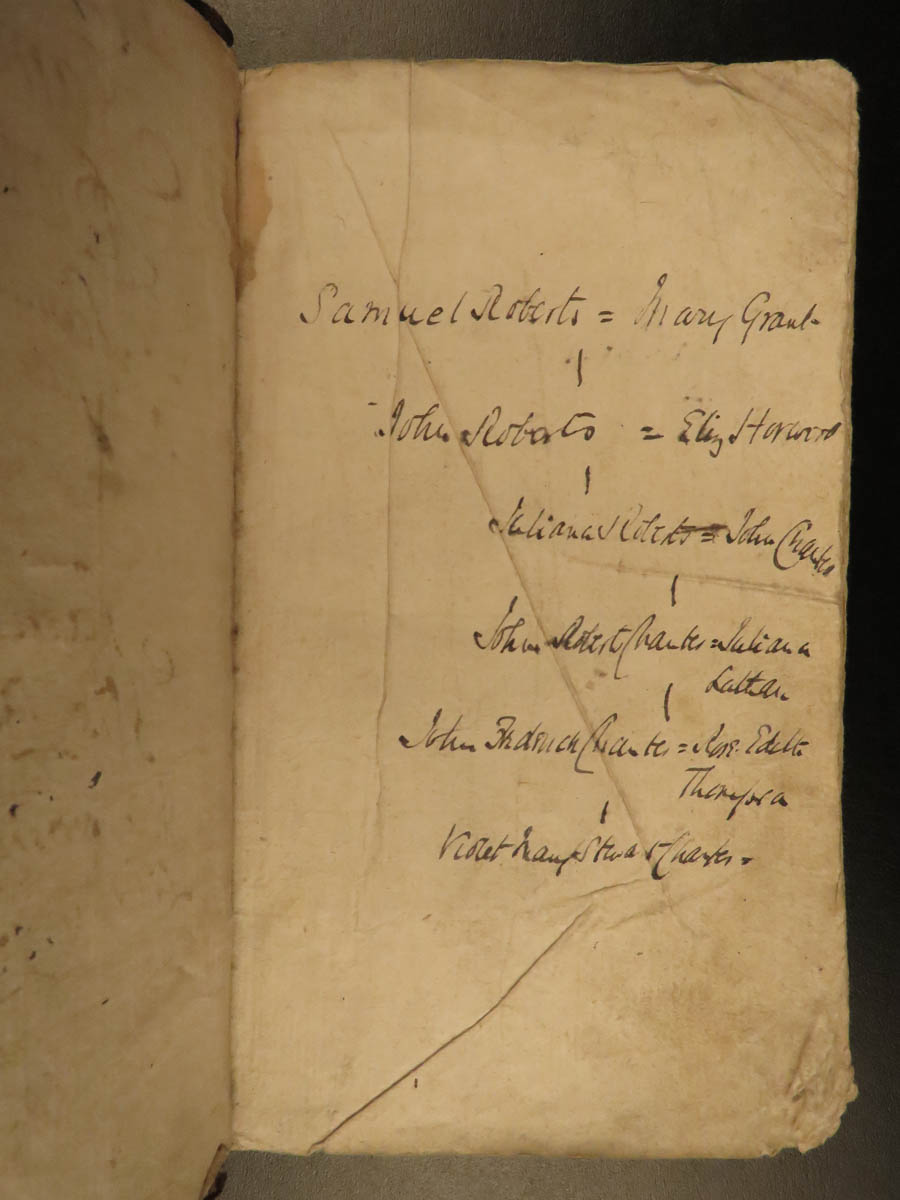 Samuel Roberts = Mary Grant
John Roberts = Eliz Horwood
Juliana Roberts = John Chanter
John Robert Chanter = Juliana
John Fredrick Chanter = Rose Edith
Thompson
Violet Mary Stewart Chanter =